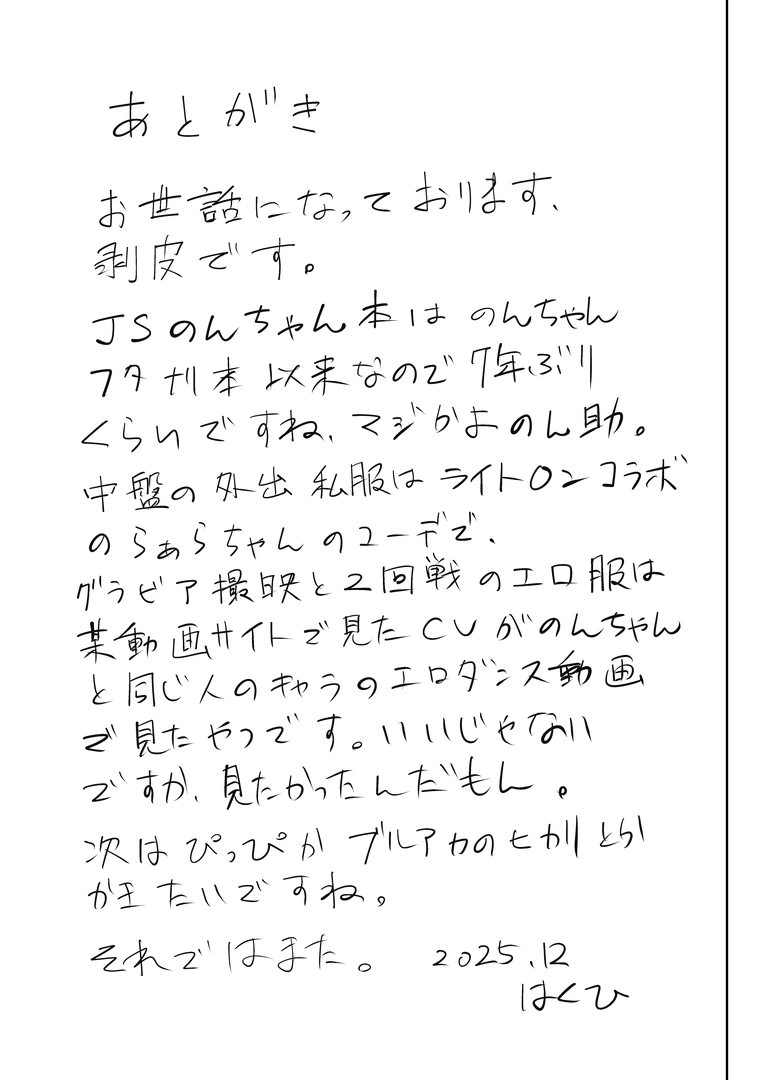 あとがき
お世話になっております、
剥皮です。
JSのんちゃん本は のんちゃん
フタナリ本 以来なので 7年ぶり
くらいですね、マジかよのん助。
中盤の 外出 私服は ライトオンコラボ
のらぁらちゃんのコーデで、
グラビア撮影と2回戦のエロ服は
某動画サイトで見たCVがのんちゃん
と同じ人のキャラのエロダンス動画
で見たやつです。いいじゃない
ですか、見たかったんだもん。
次は ぴっぴか ブルアカのヒカリとか
かきたいですね。
それではまた。 2025.12
はくひ